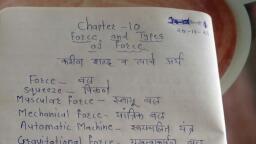 Chapter - 10
Force and Types
of Force
कठीन शब्द व त्याचे अर्थ
Force - बल
squeeze - पिळणे
Muscular Force - स्नायू बल
Mechanical Force - यांत्रिक बल
Automatic Machine - स्वयंचलित यंत्र
Gravitational Force - गुरुत्वाकर्षण बल